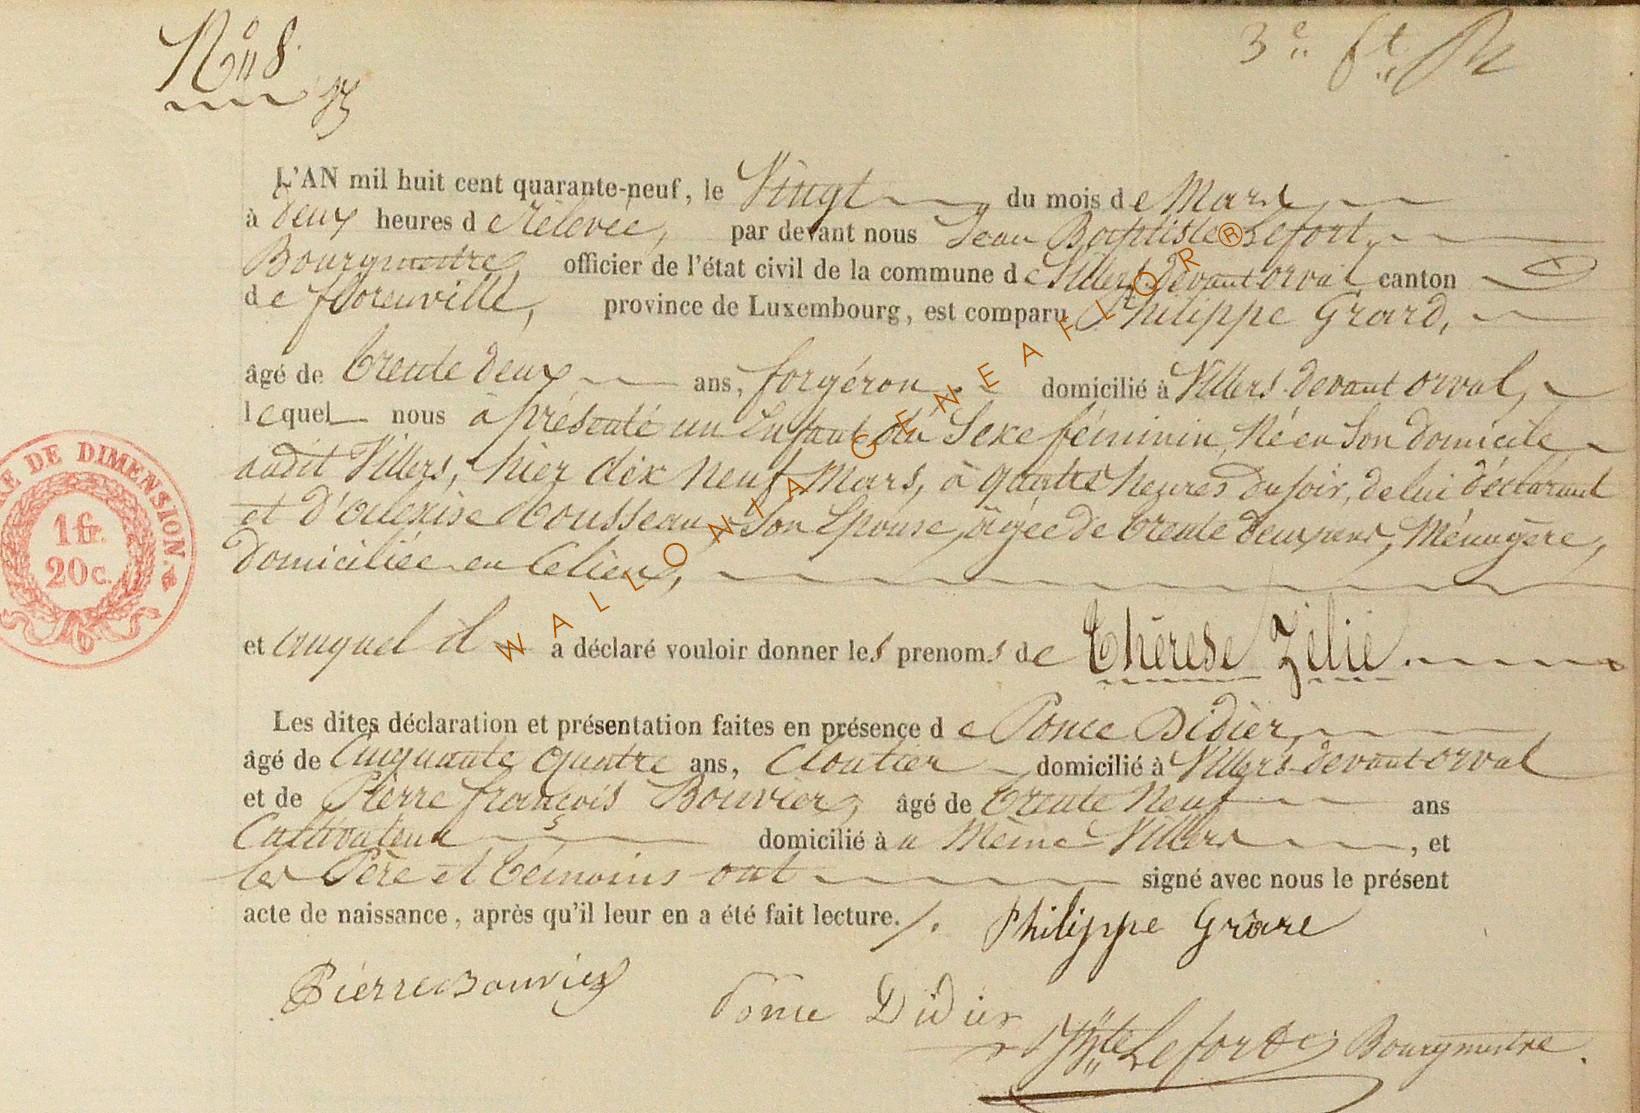 N° 8.
3e ft
L'AN mil huit cent quarante-neuf, le Vingt du mois de Mars
à deux heures de rélevée, par devant nous Jean Baptiste Lefort,
Bourgmestre, officier de l'état civil de la commune de Villers devant orval canton
de florenville, province de Luxembourg, est comparu Philippe Grard,
âgé de trente deux ans, forgéron domicilié à Villers devant orval,
lequel nous à présenté un Enfant du Sexe féminin, Né en Son domicile
audit Villers, hier dix neuf Mars, à quatre heures du soir, de lui déclarant
et d'Alexise Rousseau, Son Epouse, âgée de trente deux ans, Ménagère,
domiciliée en ce lieu,
et auquel il a déclaré vouloir donner les prenoms de Thérese Zélie.
Les dites déclaration et présentation faites en présence de Ponce Didier,
âgé de Cinquante quatre ans, Cloutier domicilié à Villers devant orval
et de Pierre françois Bouvier, âgé de trente Neuf ans
Cultivateur domicilié à a Même Villers, et
les Père et témoins ont signé avec nous le présent
acte de naissance, après qu'il leur en a été fait lecture. /. Philippe Grare
Pierre Bouvier
Ponce Didier
Lefort Bourgmestre.
RE DE DIMENSION.
1 fr.
20 c.
WALLONIA GENEAFLOR®